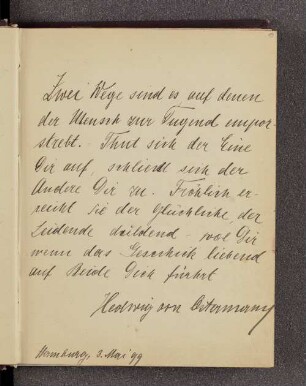 Zwei Wege sind es auf denen
der Mensch zur Tugend empor
strebt. Thut sich der Eine
Dir auf, schließt sich der
Andere Dir zu. Fröhlich er-
reicht sie der Glückliche, der
Leidende duldend - wol Dir
wenn das Geschick liebend
auf Beide Dich führt
Hedwig von Ostermann
3. Mai 99